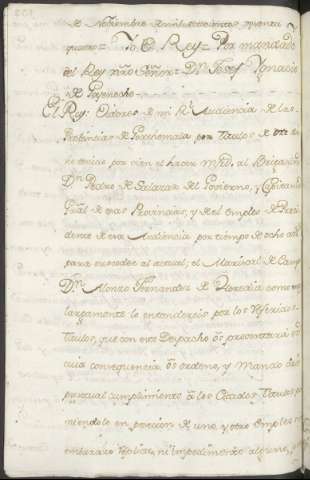 de Noviembre de mil setecientos, quarenta y
quatro = Yo El Rey = Por mandado
del Rey nro Señor = Dn Josef Ignacio
de Goyeneche
El Rey: Oidores de mi Rl Audiencia de las
Provincias de Goathemala por Titulos de este dia
he tenido por vien el hacer mrd. al Brigadier
Dn Pedro de Salazar del Govierno, y Capitania
Gral de esas Provincias, y del empleo de Presi
dente de esa Audiencia por tiempo de ocho años
para succeder al actual, el Mariscal de Campo
Dn Alonso Fernandez de Heredia como mas
largamente lo entendereis por los referidos
Titulos, que con este Despacho os presentará en
cuia consequencia os ordeno, y mando deis
puntual cumplimiento á los Citados Titulos po
niendole en posecion de uno, y otro empleo sin
embarazo, replica, ni impedimento alguno,